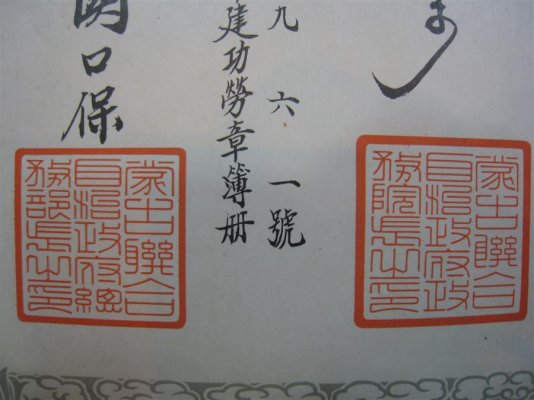 蒙古聯合
自治政府政
務院長之印
九六一號
建功勞章簿册
関口保
蒙古聯合
自治政府總
務部長之印